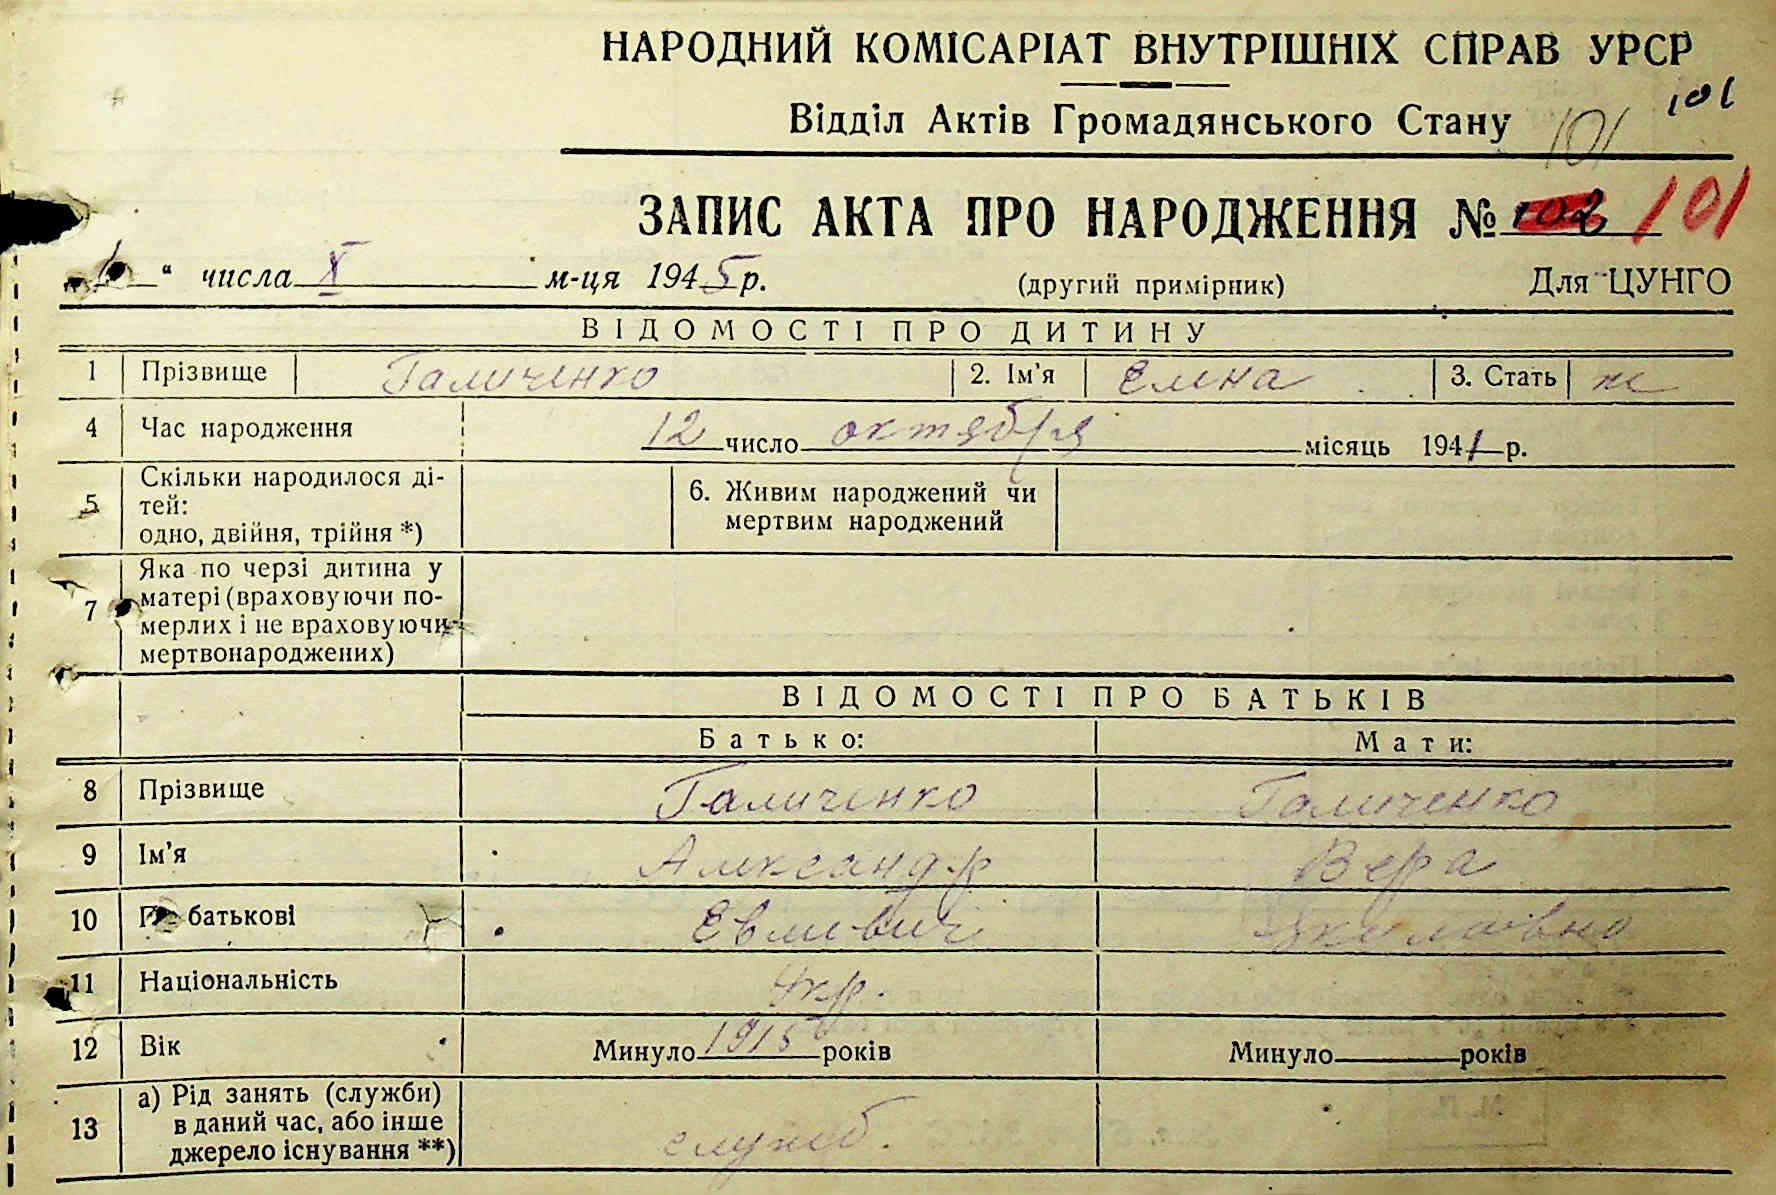 НАРОДНИЙ КОМІСАРІАТ ВНУТРІШНІХ СПРАВ УРСР
101
Відділ Актів Громадянського Стану 101
ЗАПИС АКТА ПРО НАРОДЖЕННЯ № 102 101
" числа X м-ця 1945 р. (другий примірник) Для ЦУНГО
ВІДОМОСТІ ПРО ДИТИНУ
1 Прізвище Галиченко 2. Ім'я Елена 3. Стать ж
4 Час народження 12 число октября місяць 1941 р.
5 Скільки народилося ді-
тей:
одно, двійня, трійня *)
6. Живим народжений чи
мертвим народжений
7 Яка по черзі дитина у
матері (враховуючи по-
мерлих і не враховуючи
мертвонароджених)
ВІДОМОСТІ ПРО БАТЬКІВ
Батько: Мати:
8 Прізвище Галиченко Галиченко
9 Ім'я Александр Вера
10 По батькові
11 Національність Укр.
12 Вік Минуло 1915 років Минуло років
13 а) Рід занять (служби)
в даний час, або інше
джерело існування **)
служб.